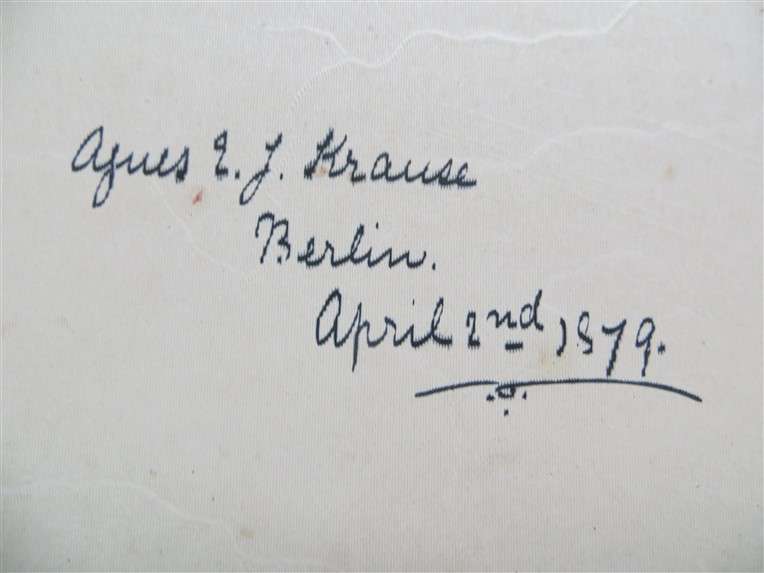 Agnes E. J. Krause
Berlin.
April 2nd 1879.